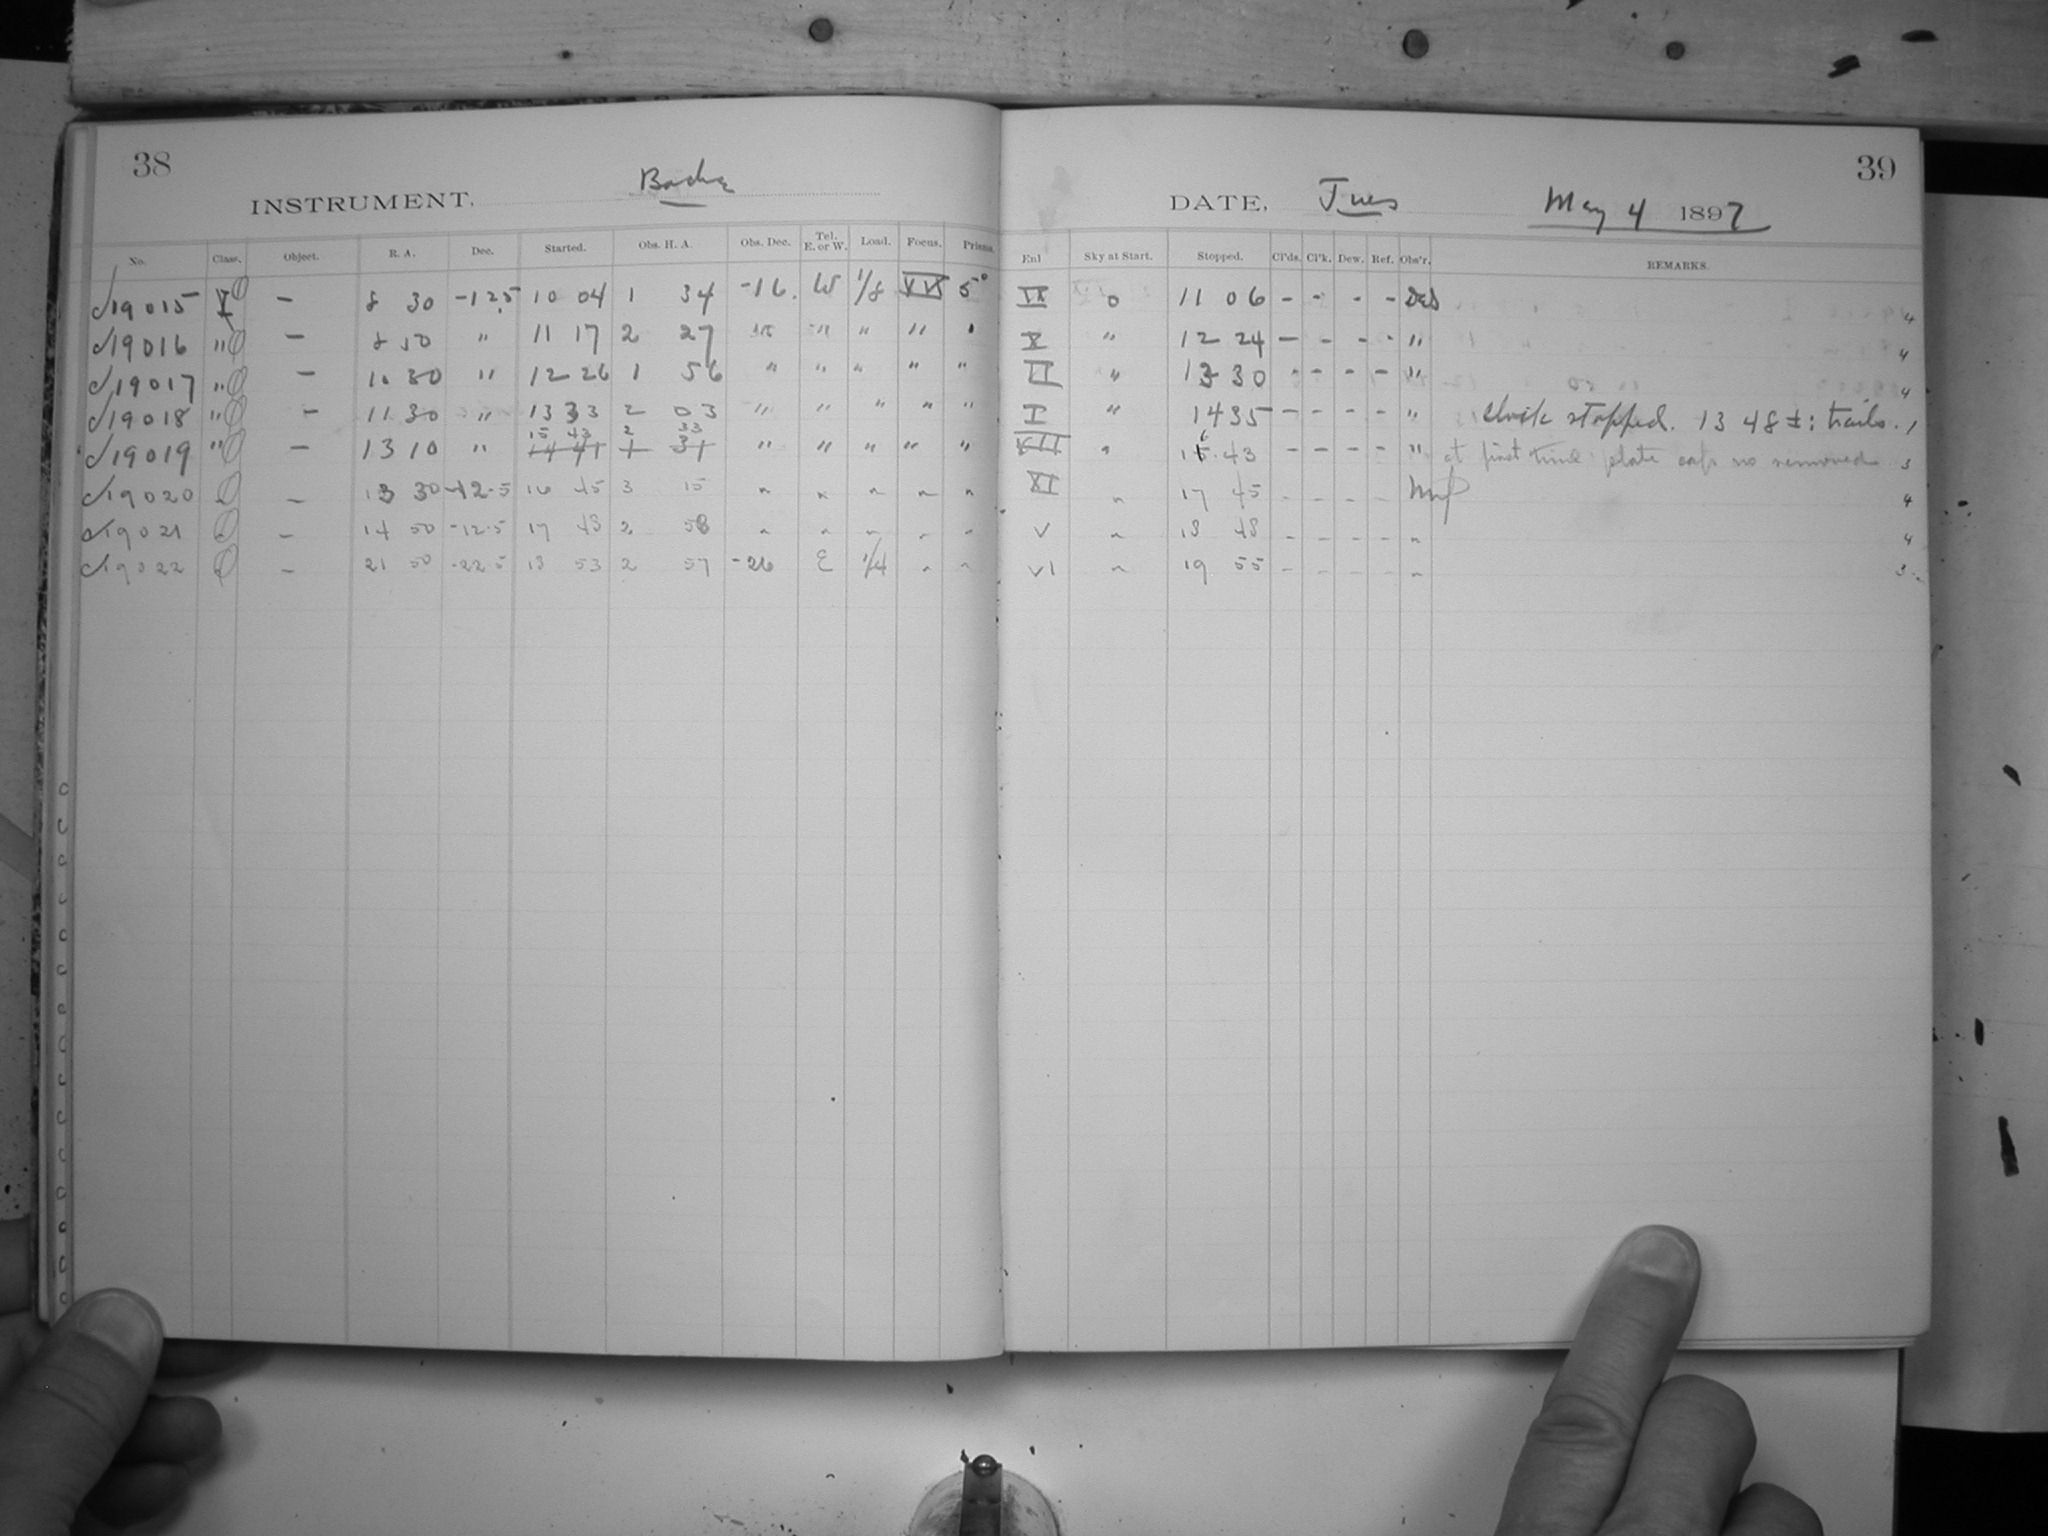 38
INSTRUMENT, Bache
No. Class. Object. R. A. Dec. Started. Obs. H. A. Obs. Dec. Tel. E. or W. Load. Focus. Prisms.
19015 — 8 30 -12.5 10 04 1 34 -16. W 1/8 5°
19016 " — 8 50 " 11 17 2 27 " " " "
19017 " — 10 30 " 12 26 1 56 " " " " "
19018 " — 11 30 " 13 33 2 03 " " " " "
15 43 2 33
19019 " — 13 10 " 14 41 1 31 " " " " "
19020 " — 13 30 -12.5 16 45 3 15 " " " " "
19021 " — 14 50 -12.5 17 48 2 58 " " " " "
19022 — 21 50 -22.5 18 53 2 57 -26 E 1/4 " "
39
DATE, Tues May 4 1897
Enl Sky at Start. Stopped. Cl'ds. Cl'k. Dew. Ref. Obs'r. REMARKS.
IX 0 11 06 - - - - 4
X " 12 24 - - - - " 4
" 13 30 - - - - " 4
I " 14 35 - - - - " Clock stopped. 13 48 ±: trails. 1
" 16 43 - - - - " at first time plate cap no removed 3
XI " 17 45 - - - - 4
V " 18 48 - - - - " 4
VI " 19 55 - - - - " 3